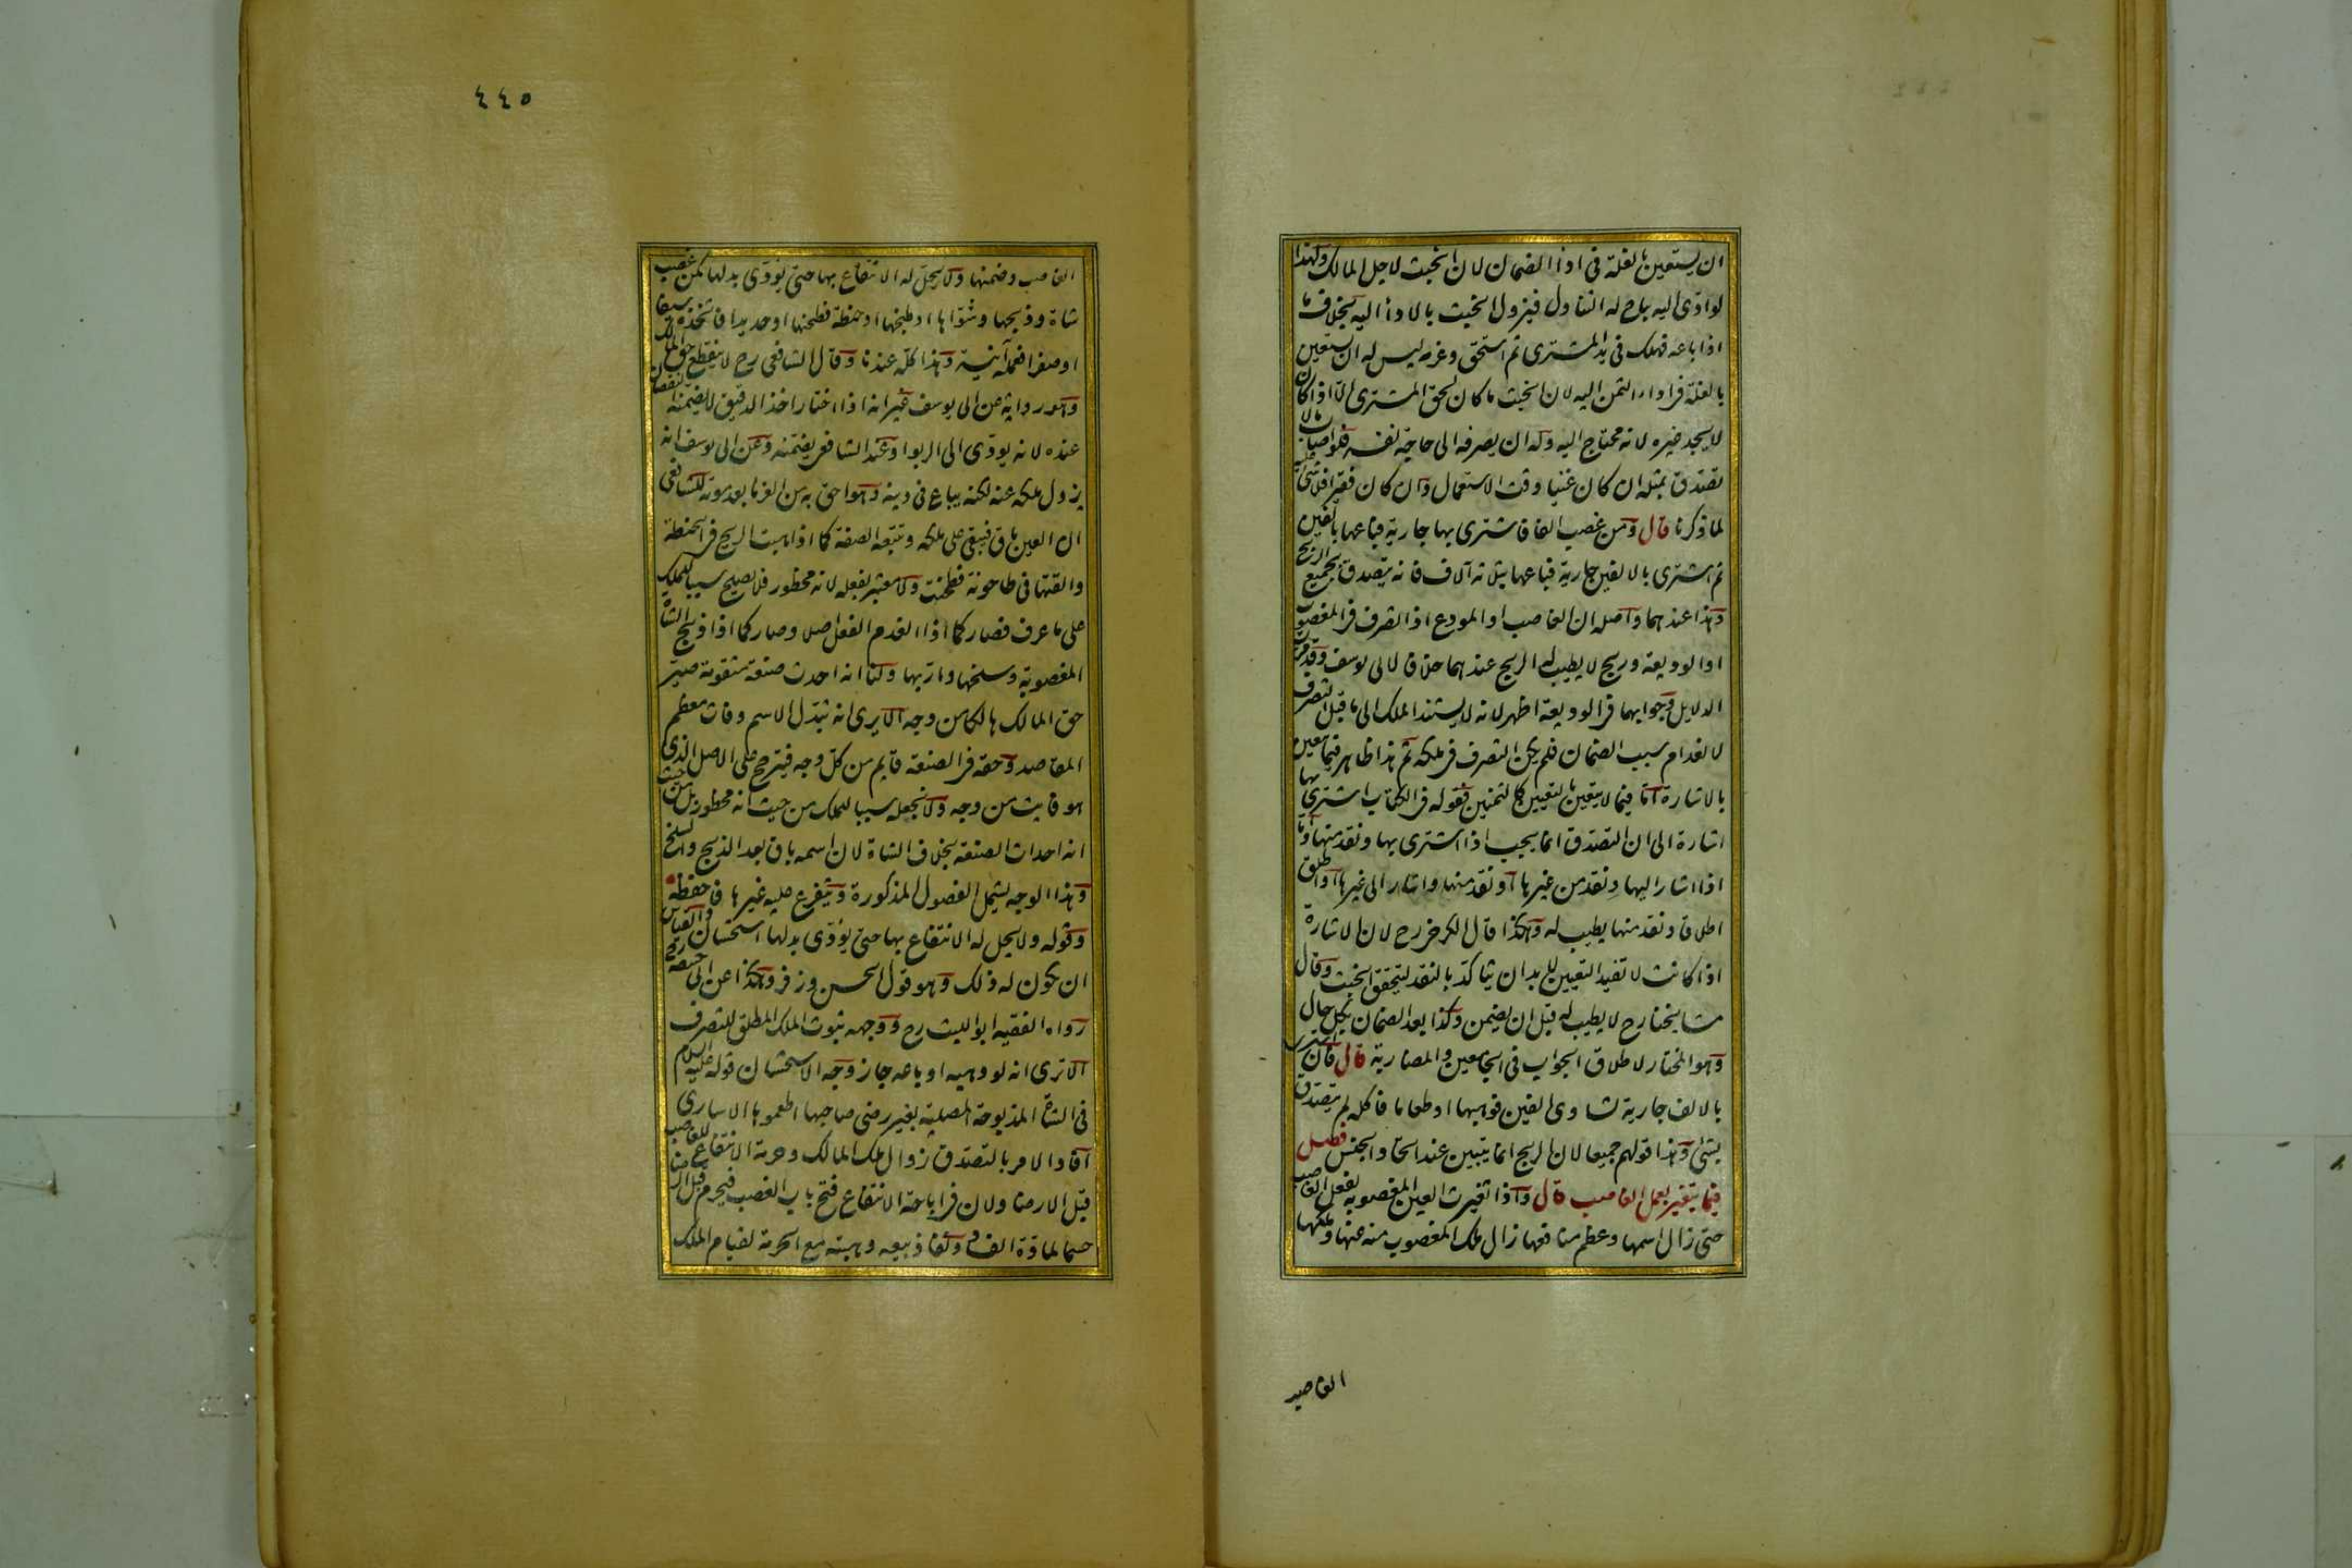 ان يستعين بالغلة فى اداء الضمان لان الخبث لاجل المالك ولهذا
لو ادى اليه يباح له التناول فيزول الخبث بالاداء اليه بخلاف ما
اذا باعه فهلك فى يد المشترى ثم استحق وغرمه ليس له ان يستعين
بالغلة فى اداء الثمن اليه لان الخبث ما كان لحق المشترى الا اذا كان
لا يجد غيره لانه محتاج اليه وله ان يصرفه الى حاجة نفسه فلو اصاب مالا
تصدق بمثله ان كان غنيا وقت الاستعمال وان كان فقيرا فلا شئ عليه
لما ذكرنا قال ومن غصب الفا فاشترى بها جارية فباعها بالفين
ثم اشترى بالالفين جارية فباعها بثلاثة آلاف فانه يتصدق بجميع الربح
وهذا عندهما واصله ان الغاصب او المودع اذا تصرف فى المغصوب
او الوديعة وربح لا يطيب له الربح عندهما خلافا لابى يوسف وقد مرت
الدلايل وجوابهما فى الوديعة اظهر لانه لا يستند الملك الى ما قبل التصرف
لانعدام سبب الضمان فلم يكن التصرف فى ملكه ثم هذا ظاهر فيما يتعين
بالاشارة اما فيما لا يتعين بالتعيين كالثمنين فقوله فى الكتاب اشترى بها
اشارة الى ان التصدق انما يجب اذا اشترى بها ونقد منها اما
اذا اشار اليها ونقد من غيرها او نقد منها واشار الى غيرها او اطلق
اطلاقا ونقد منها يطيب له وهكذا قال الكرخى رح لان الاشارة
اذا كانت لا تفيد التعيين لا بد ان يتاكد بالنقد ليتحقق الخبث وقال
مشايخنا رح لا يطيب له قبل ان يضمن وكذا بعد الضمان بكل حال
وهو المختار لاطلاق الجواب فى الجامعين والمضاربة قال فان اشترى
بالالف جارية تساوى الفين فوهبها او طعاما فاكله لم يتصدق
بشئ وهذا قولهم جميعا لان الربح انما يتبين عند اتحاد الجنس فصل
فيما يتغير بعمل الغاصب قال واذا تغيرت العين المغصوبة بفعل الغاصب
حتى زال اسمها وعظم منافعها زال ملك المغصوب منه عنها وملكها
الغاصب
٤٤٥
الغاصب وضمنها ولا يحل له الانتفاع بها حتى يؤدى بدلها كمن غصب
شاة وذبحها وشواها او طبخها او حنطة فطحنها او حديدا فاتخذه سيفا
او صفرا فعمله آنية وهذا كله عندنا وقال الشافعى رح لا ينقطع حق المالك
وهو رواية عن ابى يوسف غير انه اذا اختار اخذ الدقيق لا يضمنه النقصان
عنده لانه يؤدى الى الربوا وعند الشافعى يضمنه وعن ابى يوسف انه
يزول ملكه عنه لكنه يباع فى دينه وهو احق به من الغرما بعد موته للشافعى
ان العين باق فيبقى على ملكه وتتبعه الصنعة كما اذا هبت الريح فى الحنطة
والقتها فى طاحونة فطحنت ولا معتبر بفعله لانه محظور فلا يصلح سببا للملك
على ما عرف فصار كما اذا انعدم الفعل اصلا وصار كما اذا ذبح الشاة
المغصوبة وسلخها واربها ولنا انه احدث صنعة متقومة صير
حق المالك هالكا من وجه الا يرى انه تبدل الاسم وفات معظم
المقاصد وحقه فى الصنعة قايم من كل وجه فيترجح على الاصل الذى
هو فايت من وجه ولا نجعله سببا للملك من حيث انه محظور بل من حيث
انه احداث الصنعة بخلاف الشاة لان اسمه باق بعد الذبح والسلخ
وهذا الوجه يشمل الفصول المذكورة ويتفرع عليه غيرها فاحفظه
وقوله ولا يحل له الانتفاع بها حتى يؤدى بدلها استحسان والقياس
ان يكون له ذلك وهو قول الحسن وزفر وهكذا عن ابى حنيفة رح
رواه الفقيه ابو الليث رح ووجهه ثبوت الملك المطلق للتصرف
الا ترى انه لو وهبه او باعه جاز وجه الاستحسان قوله عليه السلام
فى الشاة المذبوحة المصلية بغير رضى صاحبها اطعموها الاسارى
افاد الامر بالتصدق زوال ملك المالك وحرمة الانتفاع للغاصب
قبل الارضا ولان فى اباحة الانتفاع فتح باب الغصب فيحرم قبل الارضا
حسما لمادة الفساد ونفاذ بيعه وهبته مع الحرمة لقيام الملك